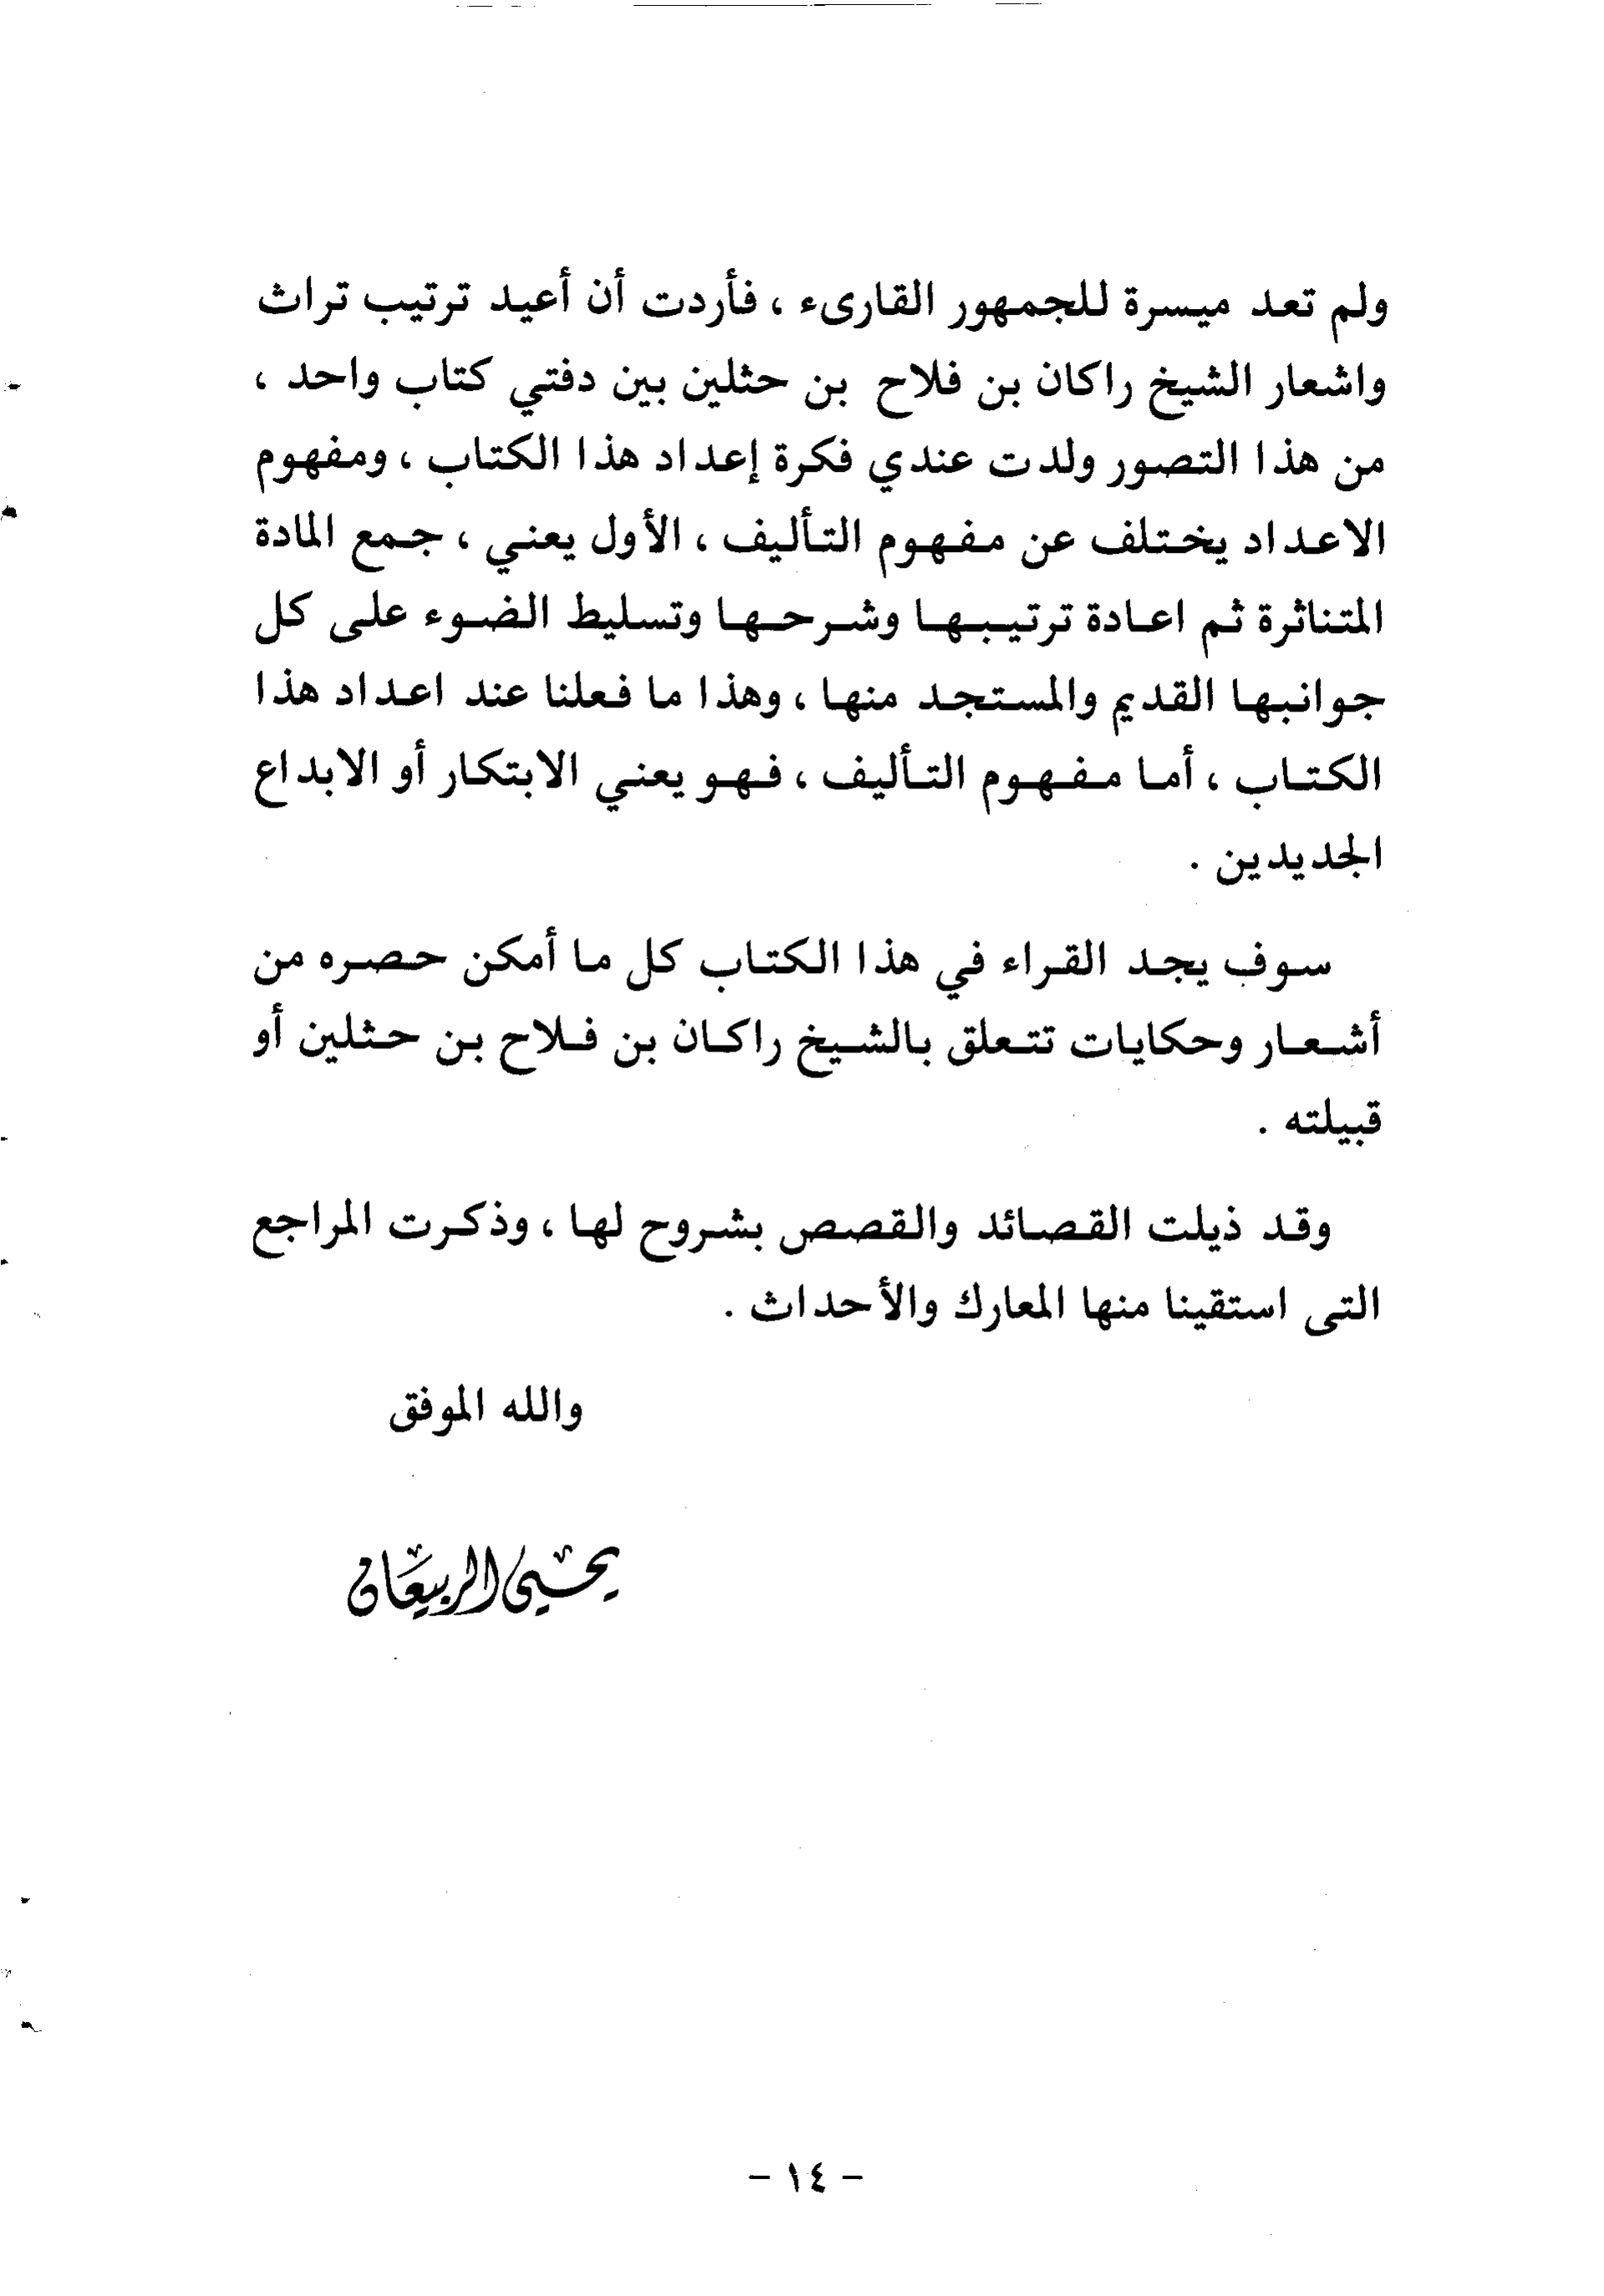 ولم تعد ميسرة للجمهور القارىء ، فأردت أن أعيد ترتيب تراث
واشعار الشيخ راكان بن فلاح بن حثلين بين دفتي كتاب واحد ،
من هذا التصور ولدت عندي فكرة إعداد هذا الكتاب ، ومفهوم
الاعداد يختلف عن مفهوم التأليف ، الأول يعني ، جمع المادة
المتناثرة ثم اعادة ترتيبها وشرحها وتسليط الضوء على كل
جوانبها القديم والمستجد منها ، وهذا ما فعلنا عند اعداد هذا
الكتاب ، أما مفهوم التأليف ، فهو يعني الابتكار أو الابداع
الجديدين .
سوف يجد القراء في هذا الكتاب كل ما أمكن حصره من
أشعار وحكايات تتعلق بالشيخ راكان بن فلاح بن حثلين أو
قبيلته .
وقد ذيلت القصائد والقصص بشروح لها ، وذكرت المراجع
التى استقينا منها المعارك والأحداث .
والله الموفق
يحيى الربيعان
- ١٤ -